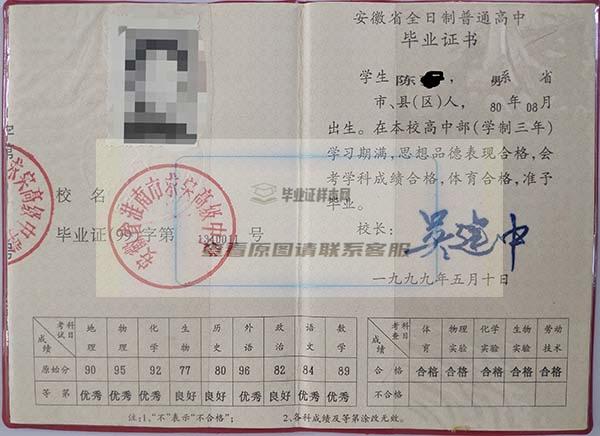 安徽省全日制普通高中
毕业证书
学生 陈 ， 男系 省
市、县(区)人， 80 年 08 月
出生。在本校高中部(学制三年)
学习期满，思想品德表现合格，会
考学科成绩合格，体育合格，准予
毕业。
校长： 吴建中
一九九九年五月十日
校 名
毕业证 99 字第 号
毕业证样本网
查看原图请联系客服
考试科目 地理 物理 化学 生物 历史 外语 政治 语文 数学
成绩
原始分 90 95 92 77 80 96 82 84 89
等 第 优秀 优秀 优秀 良好 良好 优秀 良好 优秀 优秀
考查科目 体育 物理实验 化学实验 生物实验 劳动技术
成绩
合 格 合格 合格 合格 合格 合格
不合格
注:1、"不"表示"不合格"； 2、各科成绩及等第涂改无效。